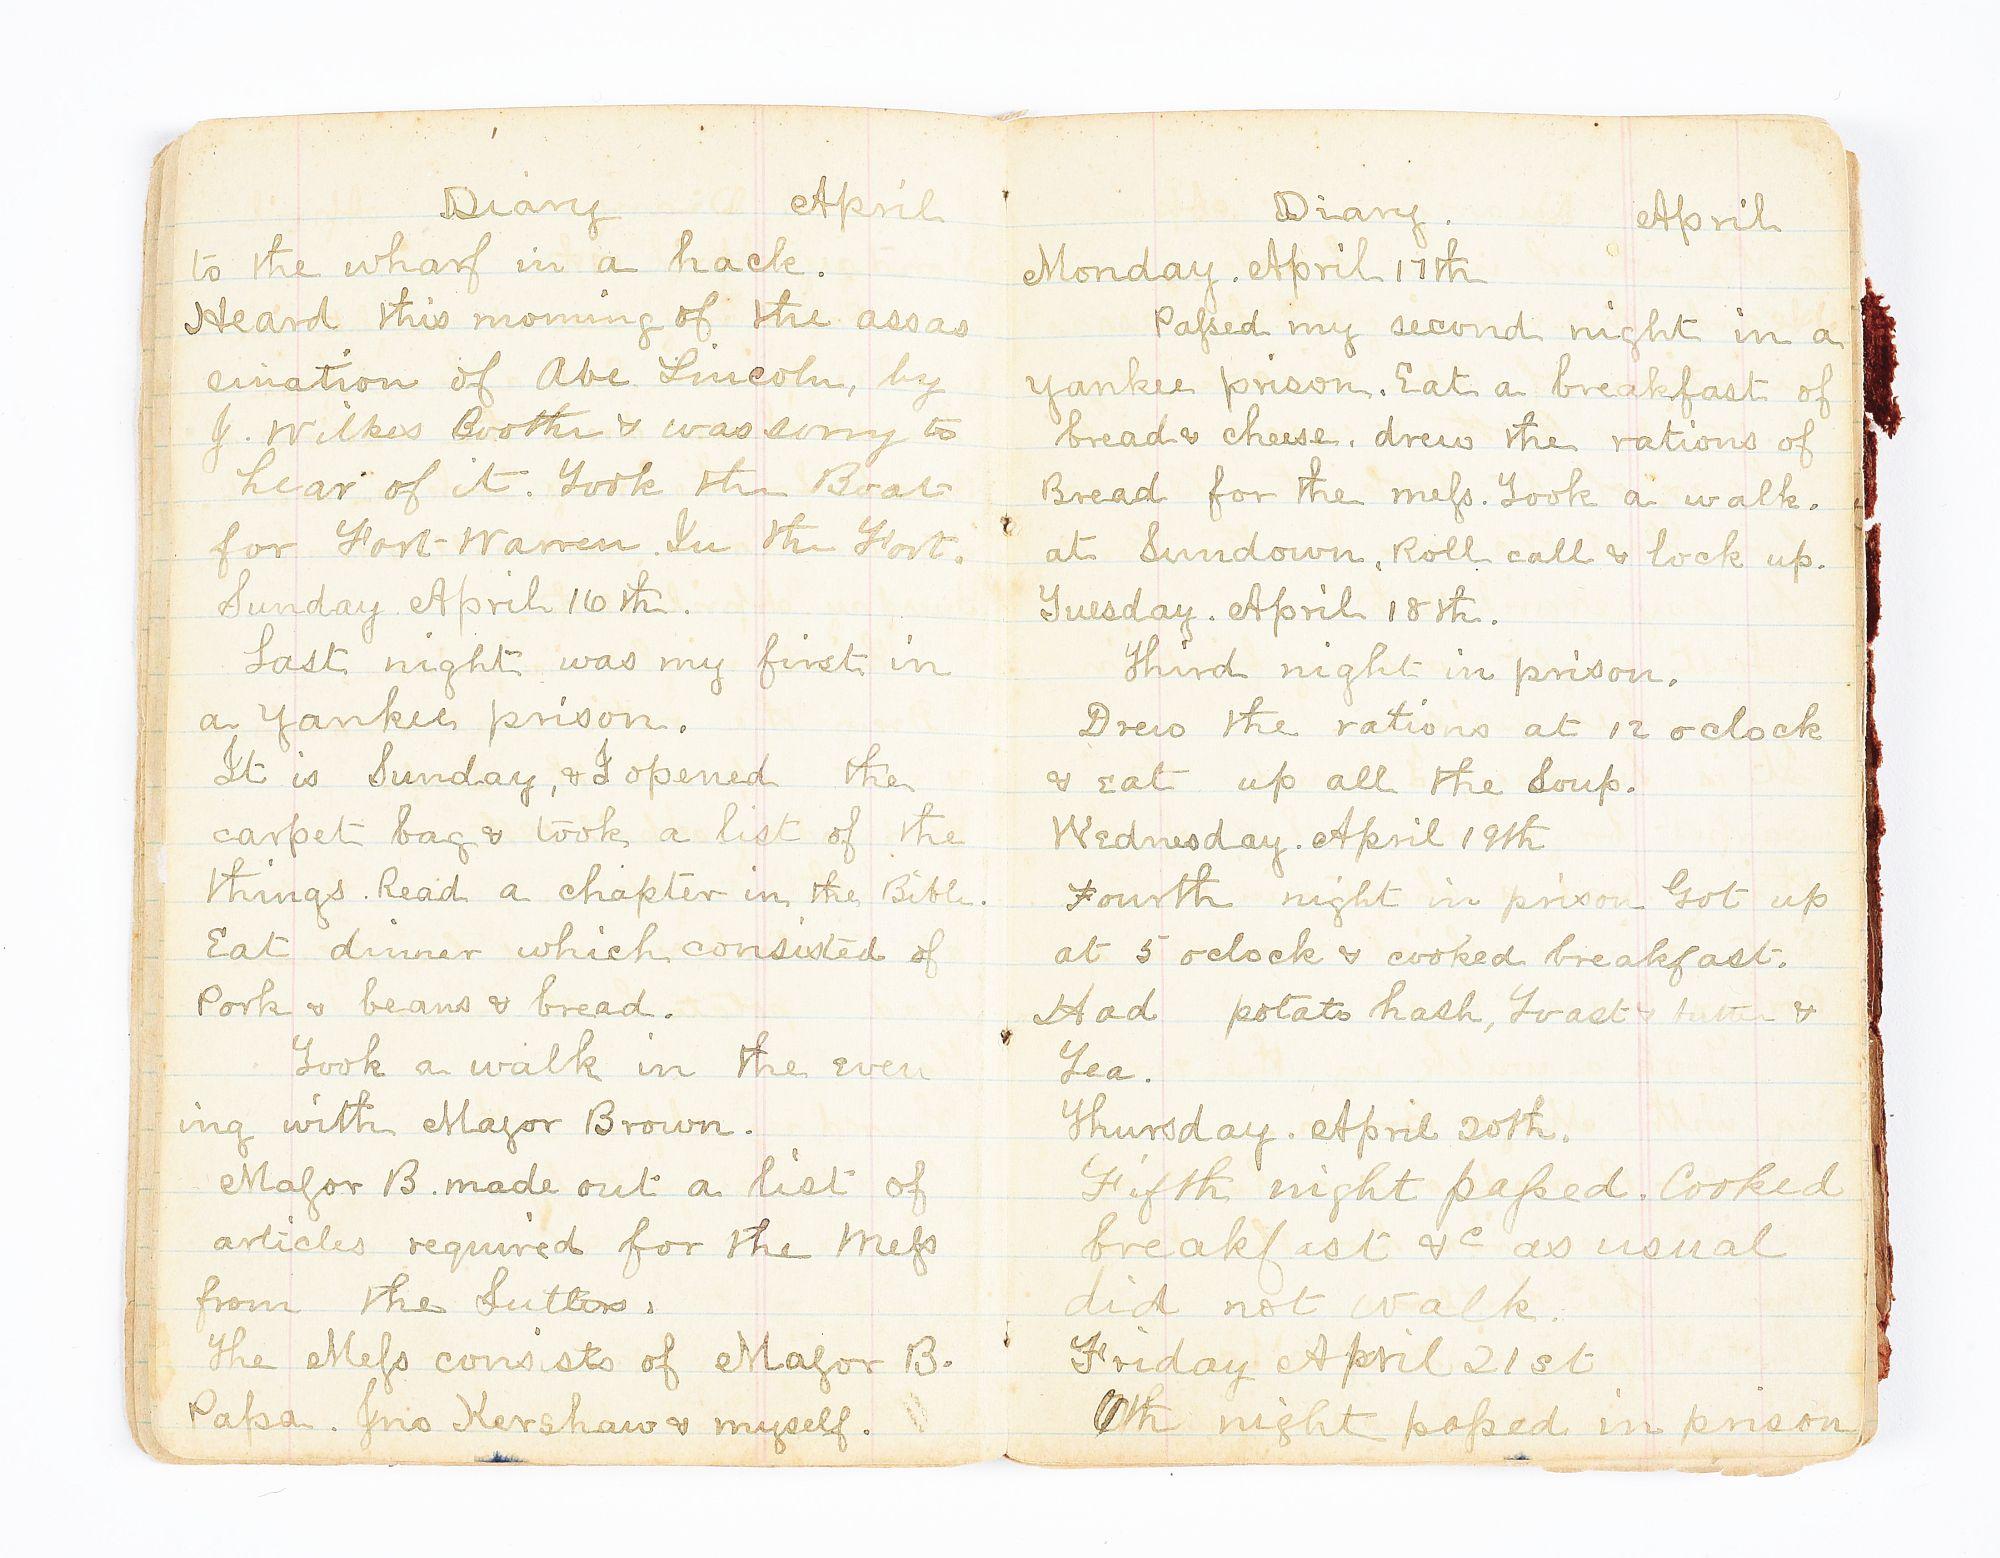 Diary April
to the wharf in a hack.
Heard this morning of the assas
sination of Abe Lincoln, by
J. Wilkes Boothe & was sorry to
hear of it. Took the Boat
for Fort Warren. In the Fort.
Sunday April 16th.
Last night was my first in
a Yankee prison.
It is Sunday, & I opened the
carpet bag & took a list of the
things. Read a chapter in the Bible.
Eat dinner which consisted of
Pork & beans & bread.
Took a walk in the even
ing with Major Brown.
Major B. made out a list of
articles required for the Mess
from the Sutlers.
The Mess consists of Major B.
Papa. Jno Kershaw & myself.
Diary. April
Monday. April 17th
Passed my second night in a
Yankee prison. Eat a breakfast of
bread & cheese. drew the rations of
Bread for the mess. Took a walk.
at Sundown, Roll call & lock up.
Tuesday. April 18th.
Third night in prison.
Drew the rations at 12 oclock
& Eat up all the Soup.
Wednesday. April 19th
Fourth night in prison Got up
at 5 oclock & cooked breakfast.
Had potato hash, Toast & butter &
Tea.
Thursday. April 20th.
Fifth night passed. Cooked
breakfast &c as usual
did not walk.
Friday April 21st
6th night passed in prison